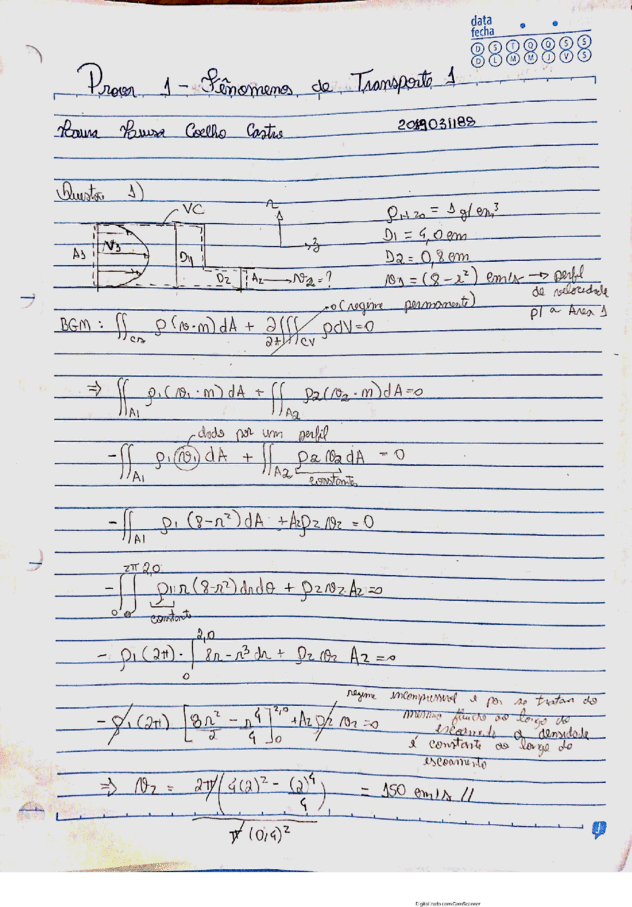 data
fecha
D S T Q Q S S
D L M M J V S
Prova 1 - Fênomenos de Transporte 1
Luisa Coelho Castro 2019031188
Questão 1)
VC
r
z
A1 V1 D1 D2 A2 v2 = ?
ρH2O = 1 g/cm³
D1 = 4,0 cm
D2 = 0,8 cm
v1 = (8 - r²) cm/s → perfil
de velocidade
p/ a Área 1
0 (regime permanente)
BGM : ∬cs ρ(v·n)dA + ∂/∂t ∭cv ρdV = 0
⇒ ∬A1 ρ1(v1·n)dA + ∬A2 ρ2(v2·n)dA = 0
dado por um perfil
-∬A1 ρ1(v1)dA + ∬A2 ρ2 v2 dA = 0
constante
-∬A1 ρ1 (8-r²)dA + A2ρ2 v2 = 0
-∫0^2π ∫0^2,0 ρ1 r(8-r²)drdθ + ρ2 v2 A2 = 0
constante
- ρ1(2π) · ∫0^2,0 8r - r³ dr + ρ2 v2 A2 = 0
regime incompressível e por se tratar do
mesmo fluido ao longo do
escoamento a densidade
é constante ao longo do
escoamento
- ρ1(2π) [8r²/2 - r⁴/4]0^2,0 + A2 ρ2 v2 = 0
⇒ v2 = 2π(4(2)² - (2)⁴/4) / π(0,4)² = 150 cm/s //
Digitalizado com CamScanner